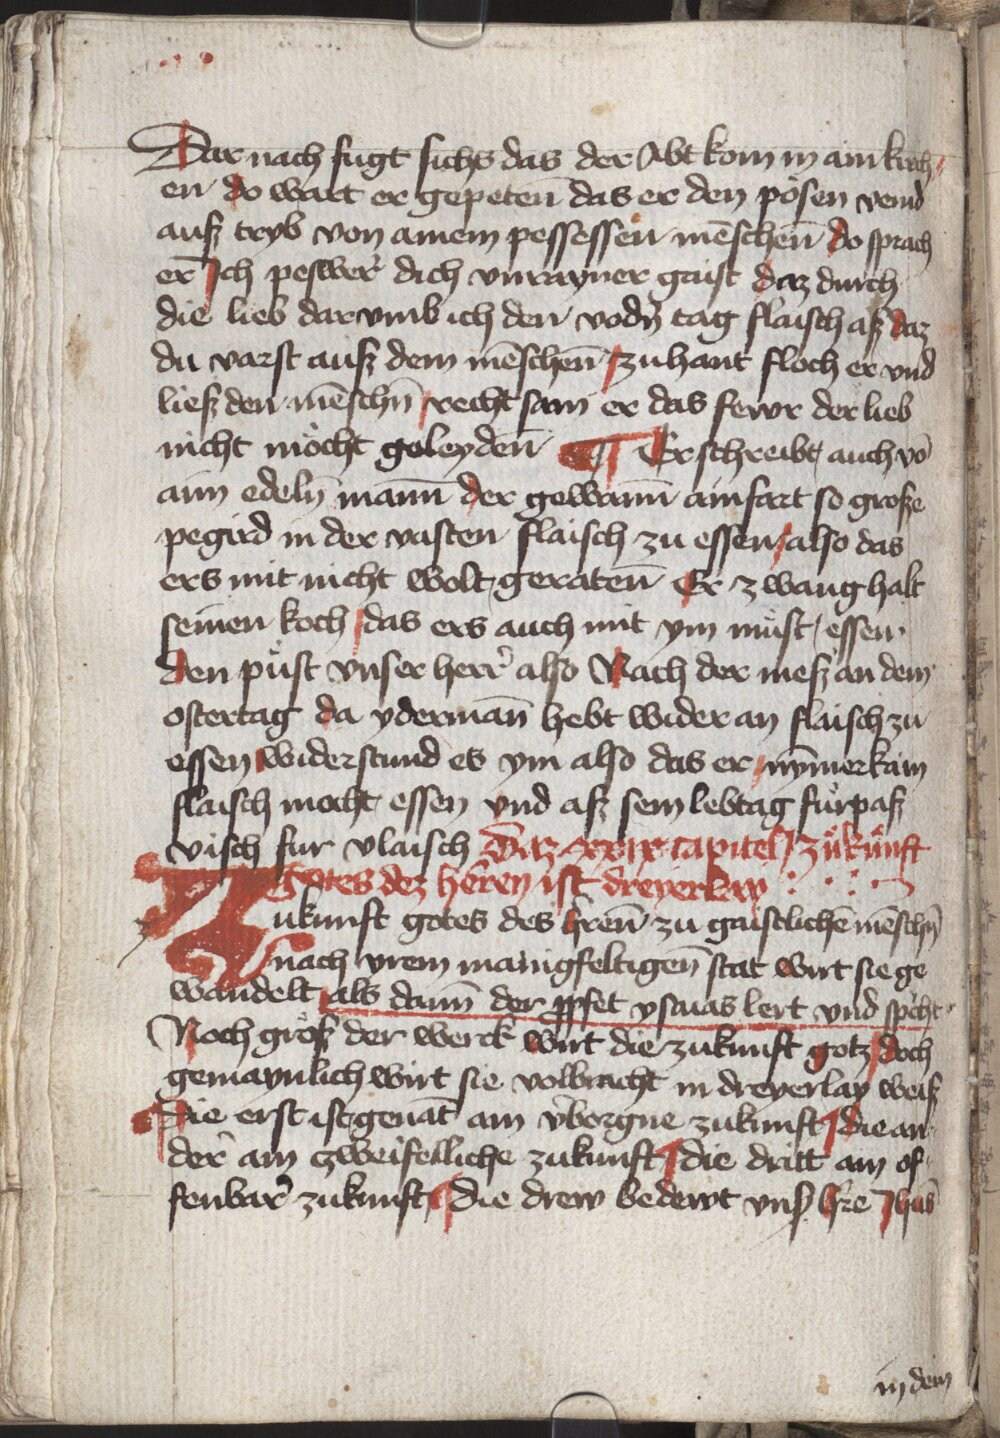 Dar nach fugt sichs das der Abt kom in ain kirch
en do wart er gepeten das er den pösen veind
ausz tryb von ainem pessessen mēschen do sprach
er Ich peswer dich vnrayner gaist daz durch
die lieb dar vmb ich den vodn̄ tag flaisch asz daz
du varst ausz dem mēschen zuhant floch er vnd
liesz den mēschn̄ recht sam er das fewr der lieb
nicht möcht geleyden ¶ Er schreibt auch vō
aim edeln̄ mann der gewann ainfart so grosze
pegird in der vasten flaisch zu essen also das
ers mit nicht wolt geraten Er zwang halt
seinen koch das ers auch mit ym müst essen
den püst vnser herr also Nach der mesz an dem
ostertag da yderman̄ hebt wider an flaisch zu
essen widerstund es ym also das er nȳmer kain
flaisch mocht essen vnd asz sein lebtag fürpasz
visch fur vlaisch Daz xxix capitel zükünft
Gotes dez heren ist dreyerlay
Zukunft gotes des h̄ren zu gaistlichē mēschn̄
nach yrem manigfeltigen stat wirt sie ge
wandelt als dann der ꝓfet ysaias lert vnd spcht
Noch grösz der werck wirt die zukunft gotz doch
gemaynlich wirt sie volbracht in dreyerlay weisz
Die erst ist genāt ain v̄borgne zukunft die an
der ain zweifelliche zukunft die dritt ain of
fenbar zukunft die drew bedewt vnſ h̄re Jhūs
in dem